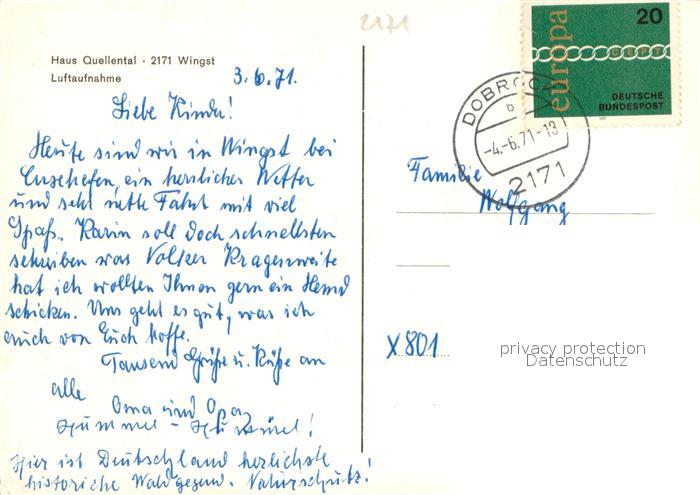 2171
Haus Quellental · 2171 Wingst
Luftaufnahme
3.6.71.
Liebe Kinder!
Heute sind wir in Wingst bei
ein herrliches Wetter
und sehr nette Fahrt mit viel
Spaß. Karin soll doch schnellsten
schreiben was Volker Kragenweite
hat ich wollten Ihnen gern ein Hemd
schicken. Uns geht es gut, was ich
auch von Euch hoffe.
Tausend Grüße u. Küße an
alle
Oma und Opa
Hier ist Deutschland herlichste
historiche Waldgegend. Naturschutz!
europa
20
CEPT
DEUTSCHE
BUNDESPOST
DOBROCK
b
-4.-6.71-18
2171
Familie
Wolfgang
X 801
privacy protection
Datenschutz